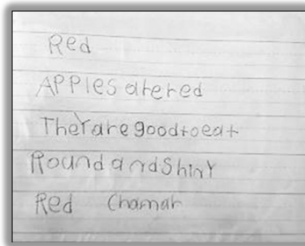 Red
APPles are red
They are good to eat
Round and ShinY
Red Chamah